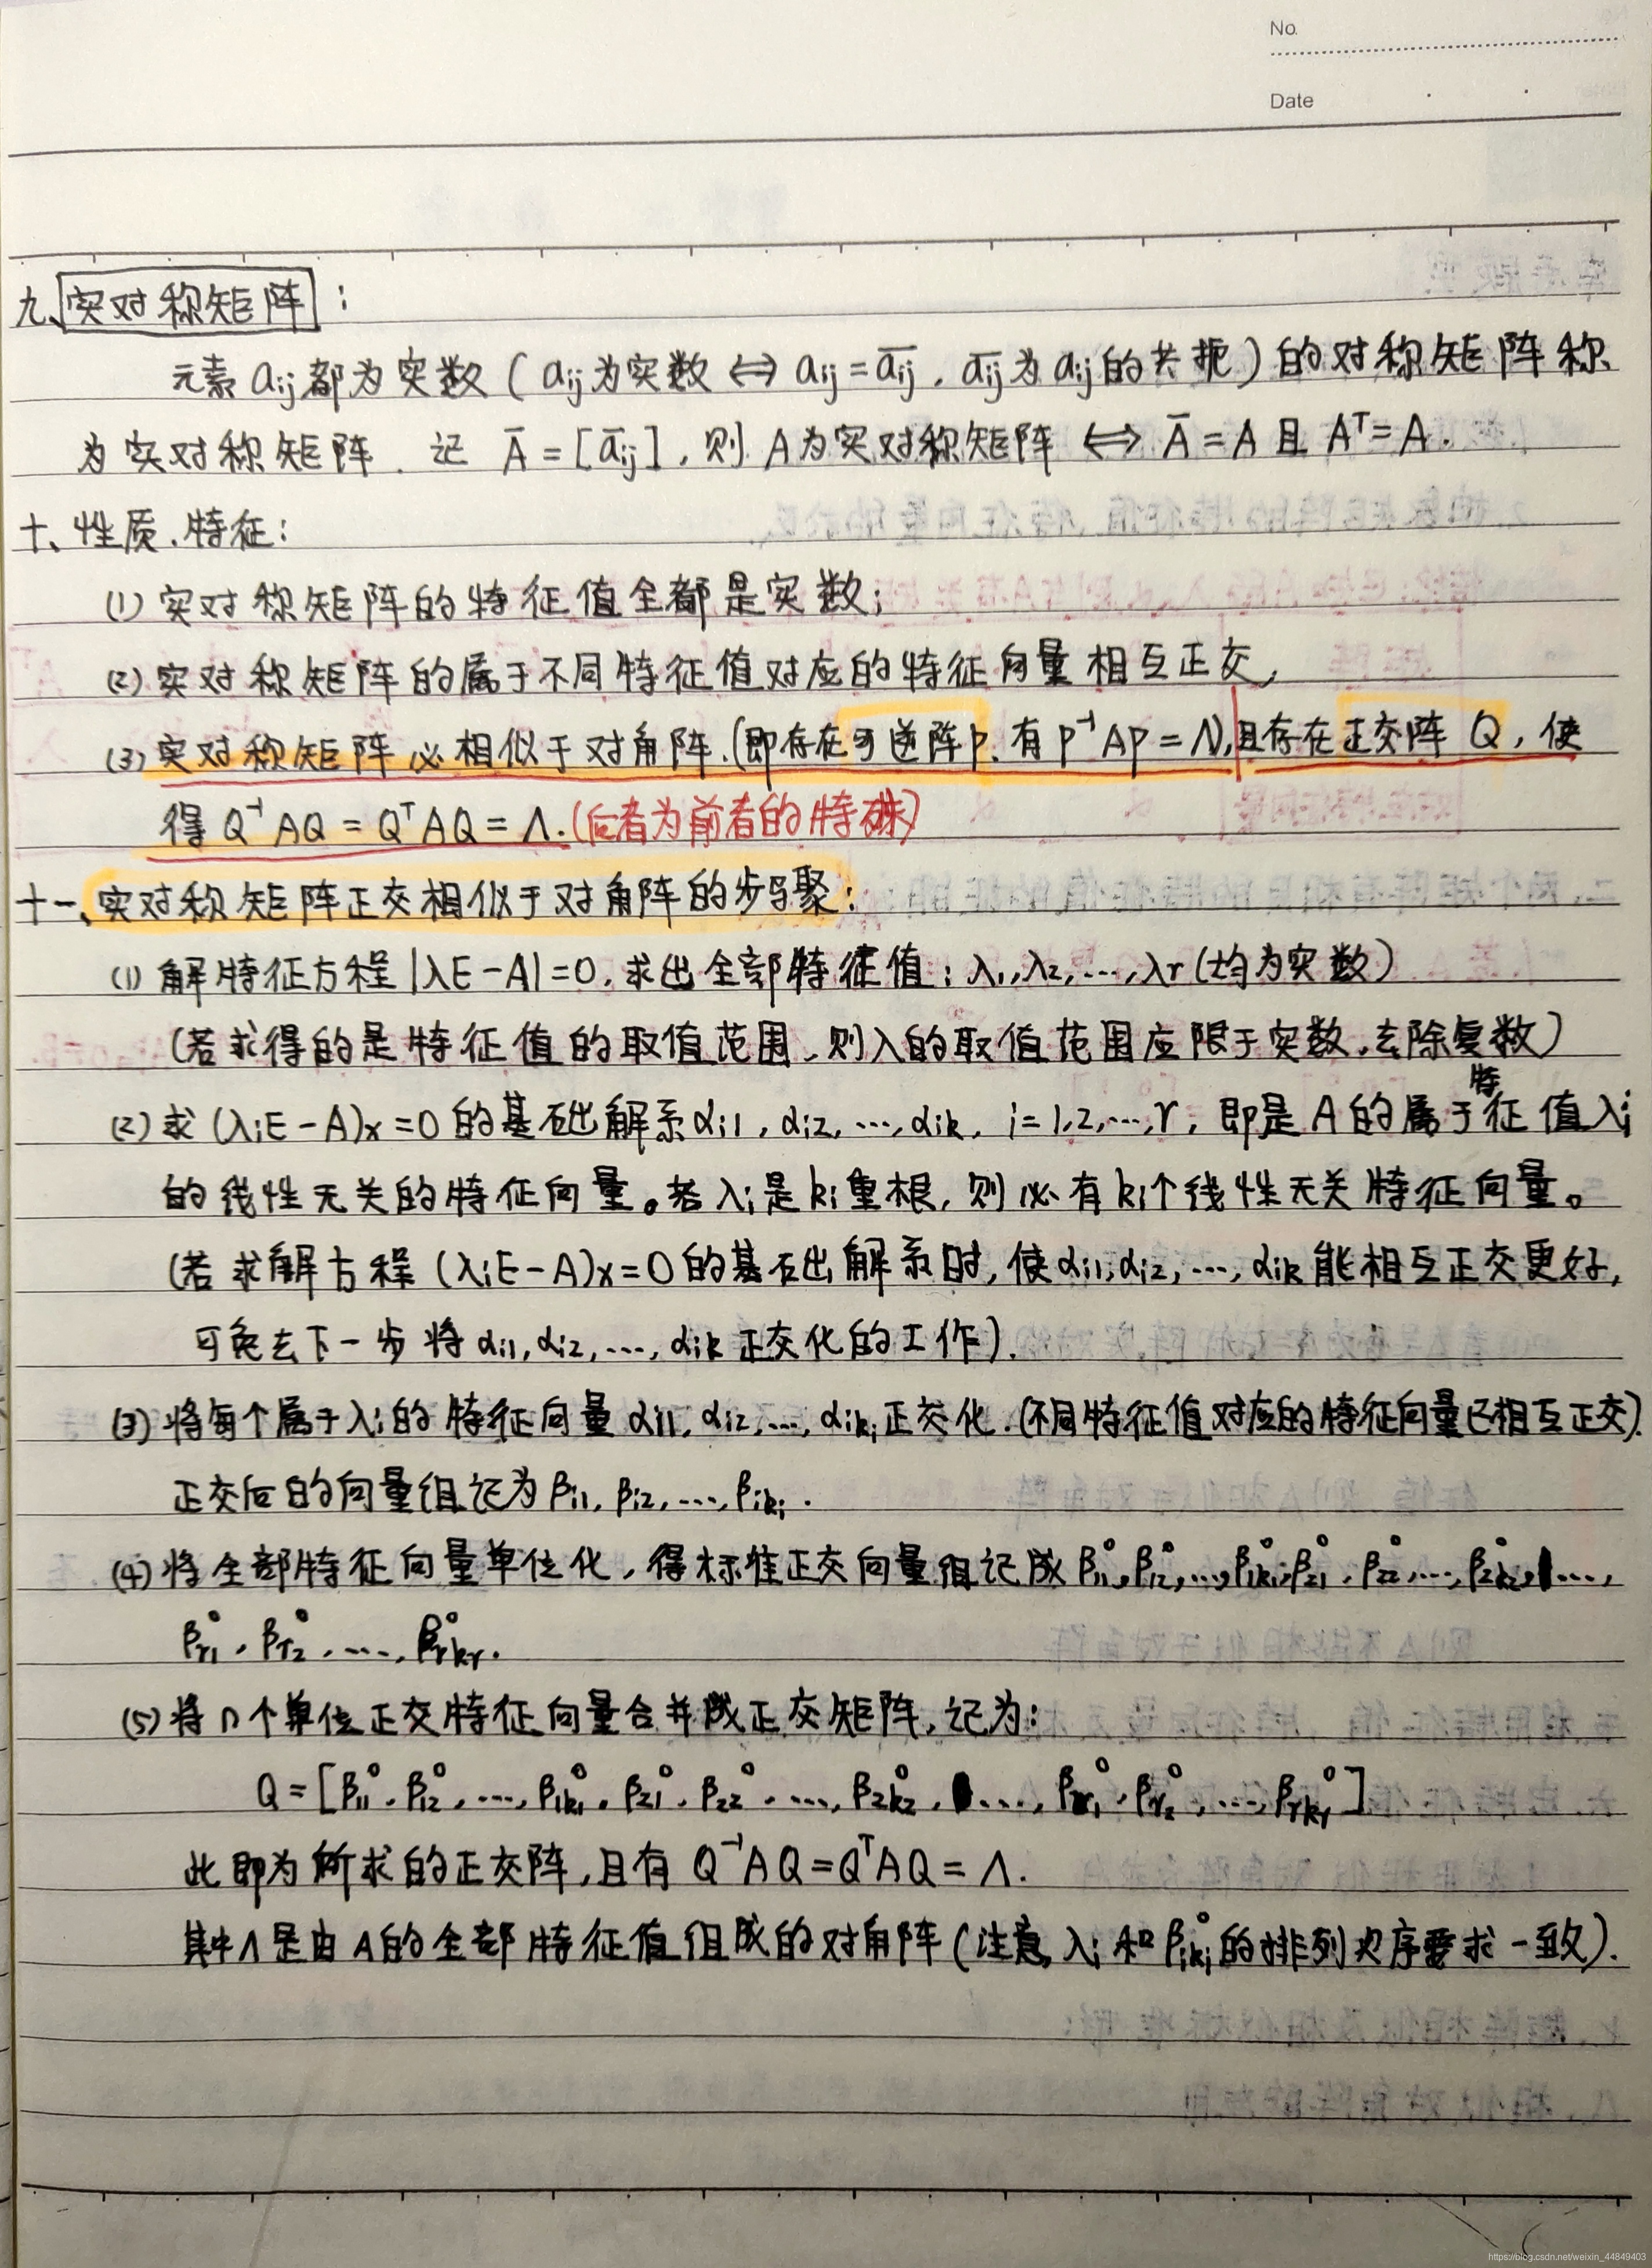 No.
Date
九、实对称矩阵：
元素 aij 都为实数 ( aij 为实数 ⇔ aij = a̅ij , a̅ij 为 aij 的共轭 ) 的对称矩阵称
为实对称矩阵. 记 A̅ = [a̅ij] , 则 A 为实对称矩阵 ⇔ A̅ = A 且 Aᵀ = A .
十、性质、特征：
(1) 实对称矩阵的特征值全都是实数；
(2) 实对称矩阵的属于不同特征值对应的特征向量相互正交,
(3) 实对称矩阵必相似于对角阵.(即存在可逆阵P, 有 P⁻¹AP = Λ), 且存在正交阵 Q , 使
得 Q⁻¹AQ = QᵀAQ = Λ. (后者为前者的特殊)
十一、实对称矩阵正交相似于对角阵的步骤：
(1) 解特征方程 |λE - A| = 0, 求出全部特征值：λ₁, λ₂, …, λr (均为实数)
(若求得的是特征值的取值范围, 则λ的取值范围应限于实数, 去除复数)
(2) 求 (λiE - A)x = 0 的基础解系 αi1 , αi2 , …, αik , i = 1,2,…,r, 即是 A 的属于特征值λi
的线性无关的特征向量。若λi是ki重根, 则必有ki个线性无关特征向量。
(若求解方程 (λiE - A)x = 0 的基础解系时, 使αi1, αi2, …, αik 能相互正交更好,
可免去下一步将 αi1, αi2, …, αik 正交化的工作).
(3) 将每个属于λi的特征向量 αi1, αi2, …, αiki 正交化. (不同特征值对应的特征向量已相互正交).
正交后的向量组记为 βi1, βi2, …, βiki .
(4) 将全部特征向量单位化, 得标准正交向量组记成 β₁₁°, β₁₂°, …, β1k₁°, β₂₁°, β₂₂°, …, β2k₂°, …,
βr1°, βr2°, …, βrkr°.
(5) 将 n 个单位正交特征向量合并成正交矩阵, 记为：
Q = [β₁₁°, β₁₂°, …, β1k₁°, β₂₁°, β₂₂°, …, β2k₂°, …, βr1°, βr2°, …, βrkr°]
此即为所求的正交阵, 且有 Q⁻¹AQ = QᵀAQ = Λ.
其中Λ是由A的全部特征值组成的对角阵 (注意, λi 和 βiki° 的排列次序要求一致).
https://blog.csdn.net/weixin_44849403